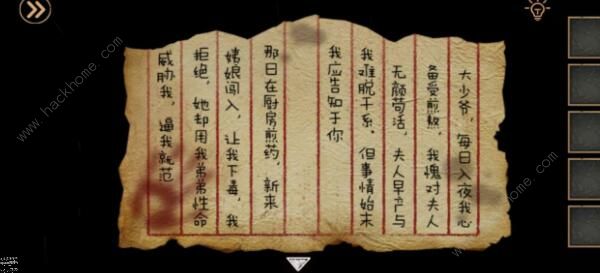 大少爷，每日入夜我心
备受煎熬，我愧对夫人
无颜苟活，夫人早产与
我难脱干系。但事情始末
我应告知于你
那日在厨房煎药，新来
姨娘闯入，让我下毒，我
拒绝，她却用我弟弟性命
威胁我，逼我就范
www.hackhome.com
www.hackhome.com
www.hackhome.com